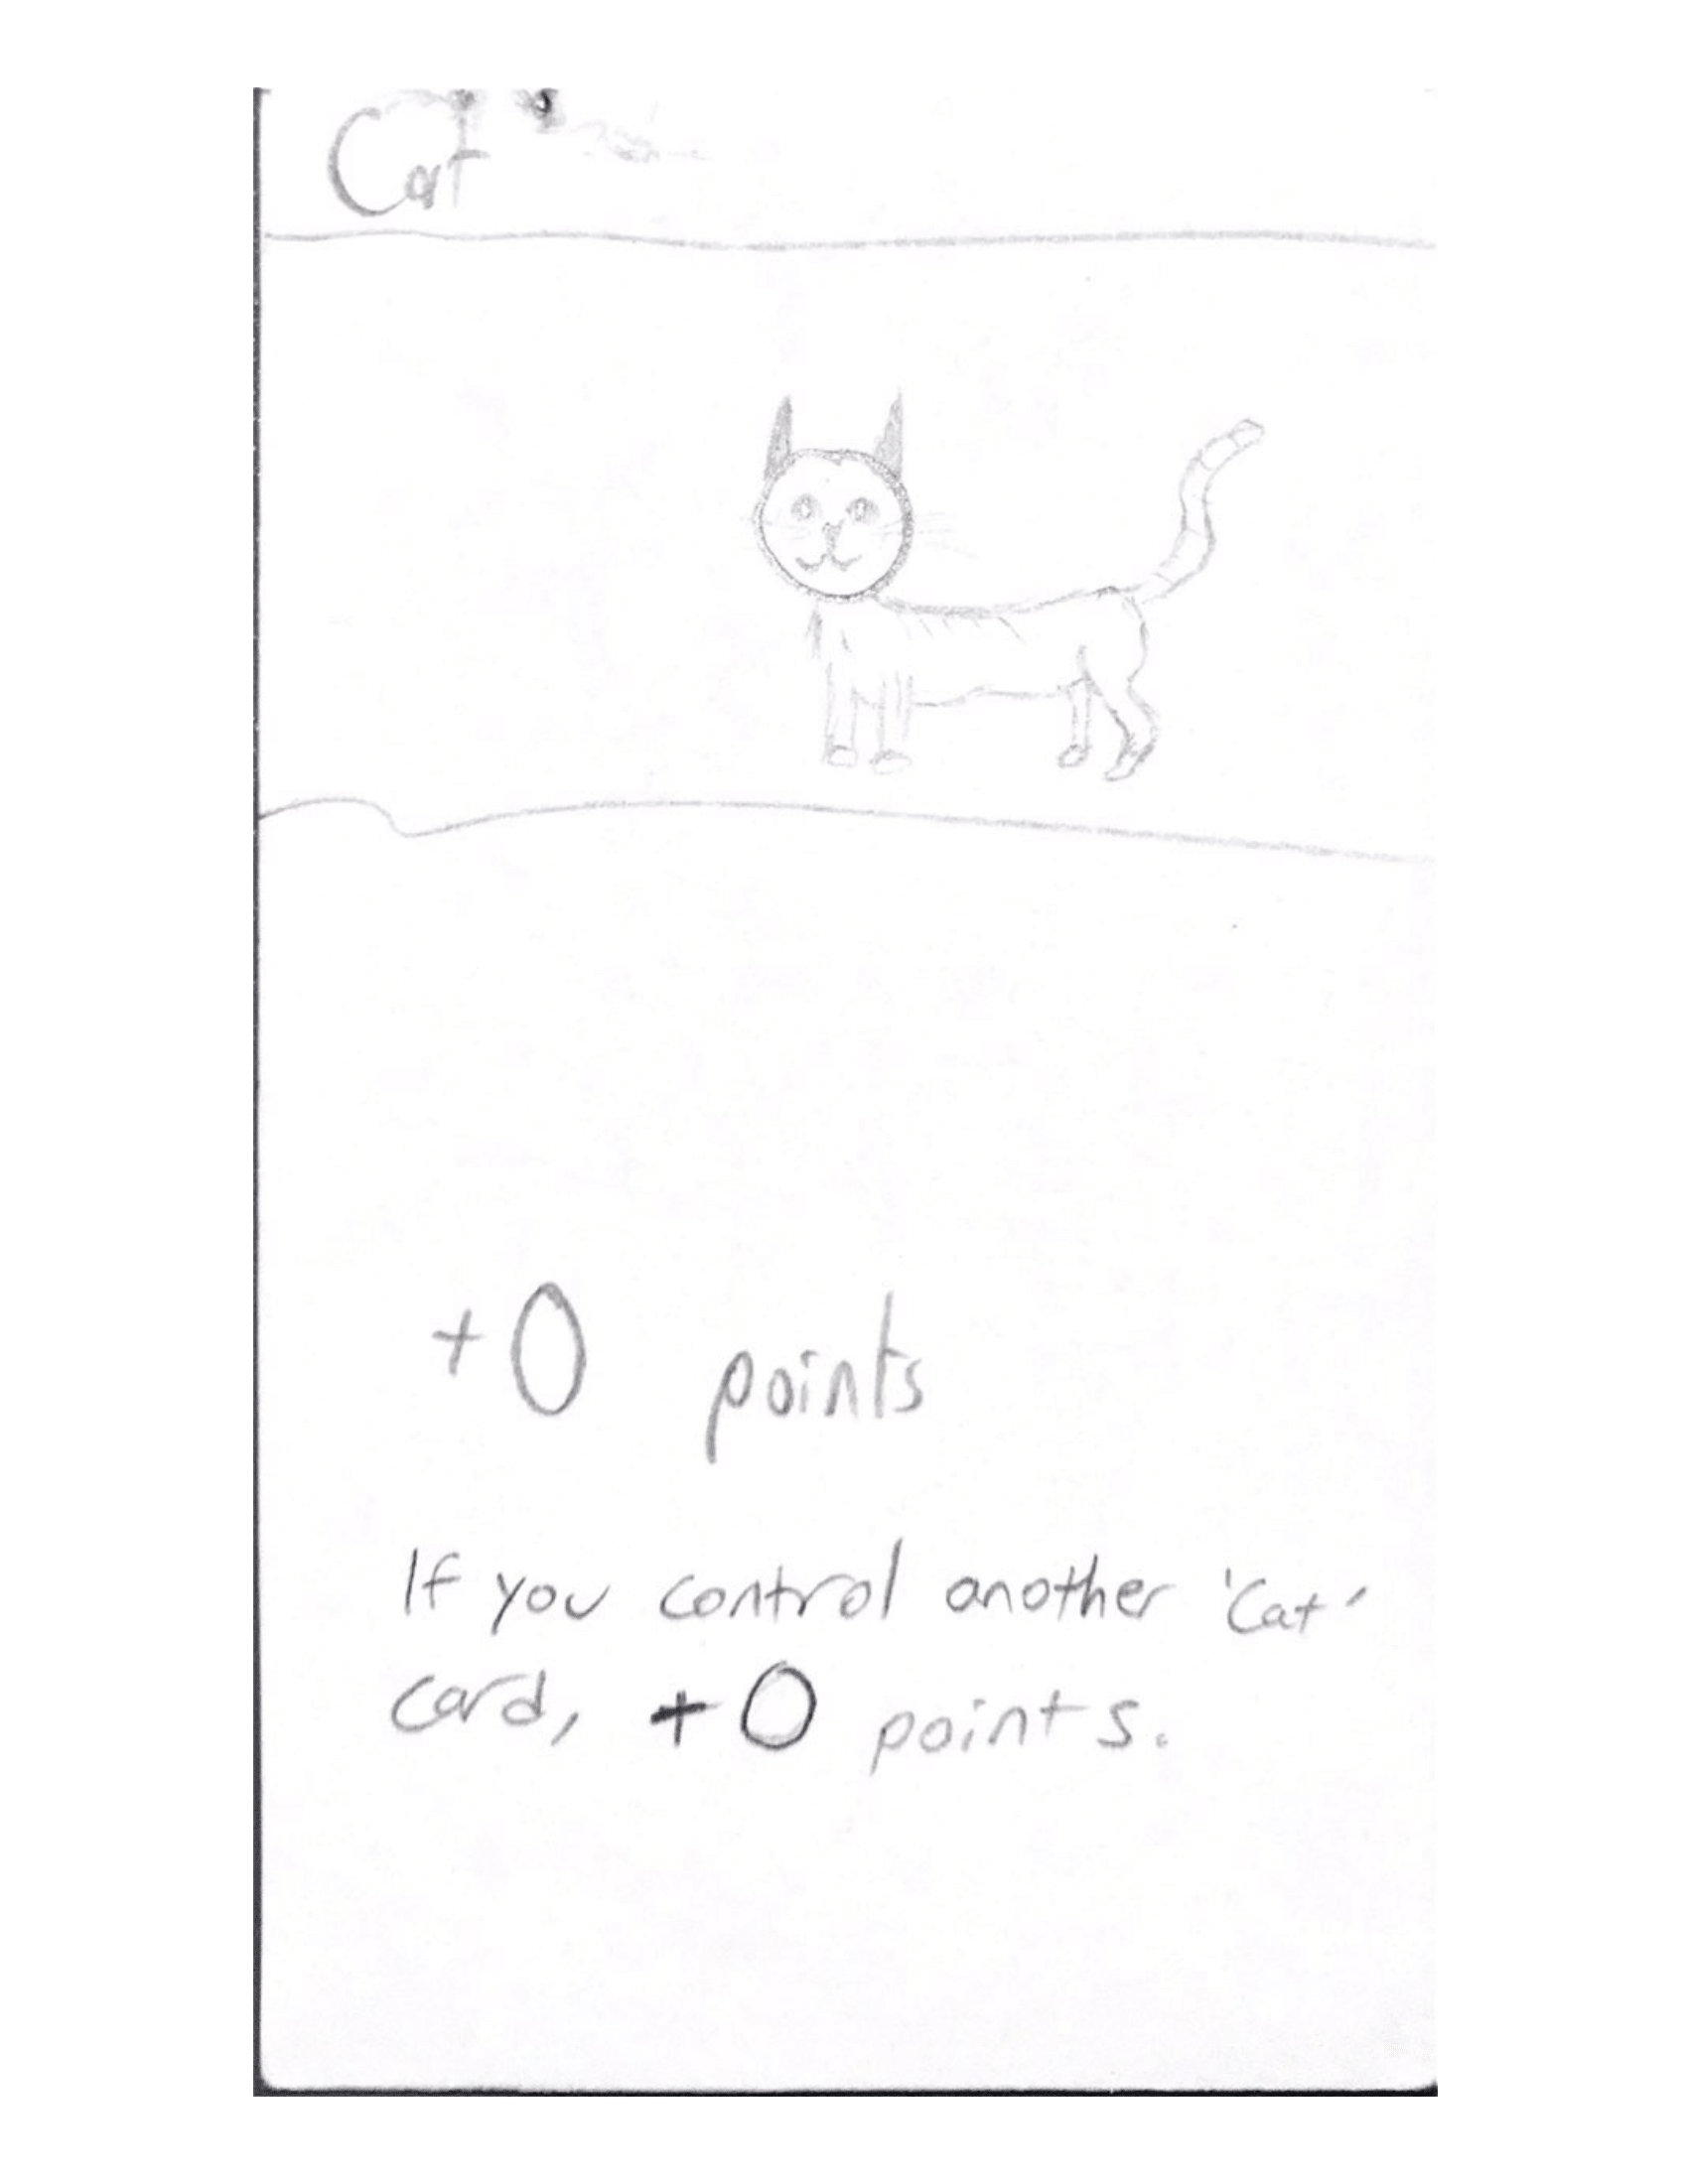 Cat
+0 points
If you control another 'Cat'
card, +0 points.